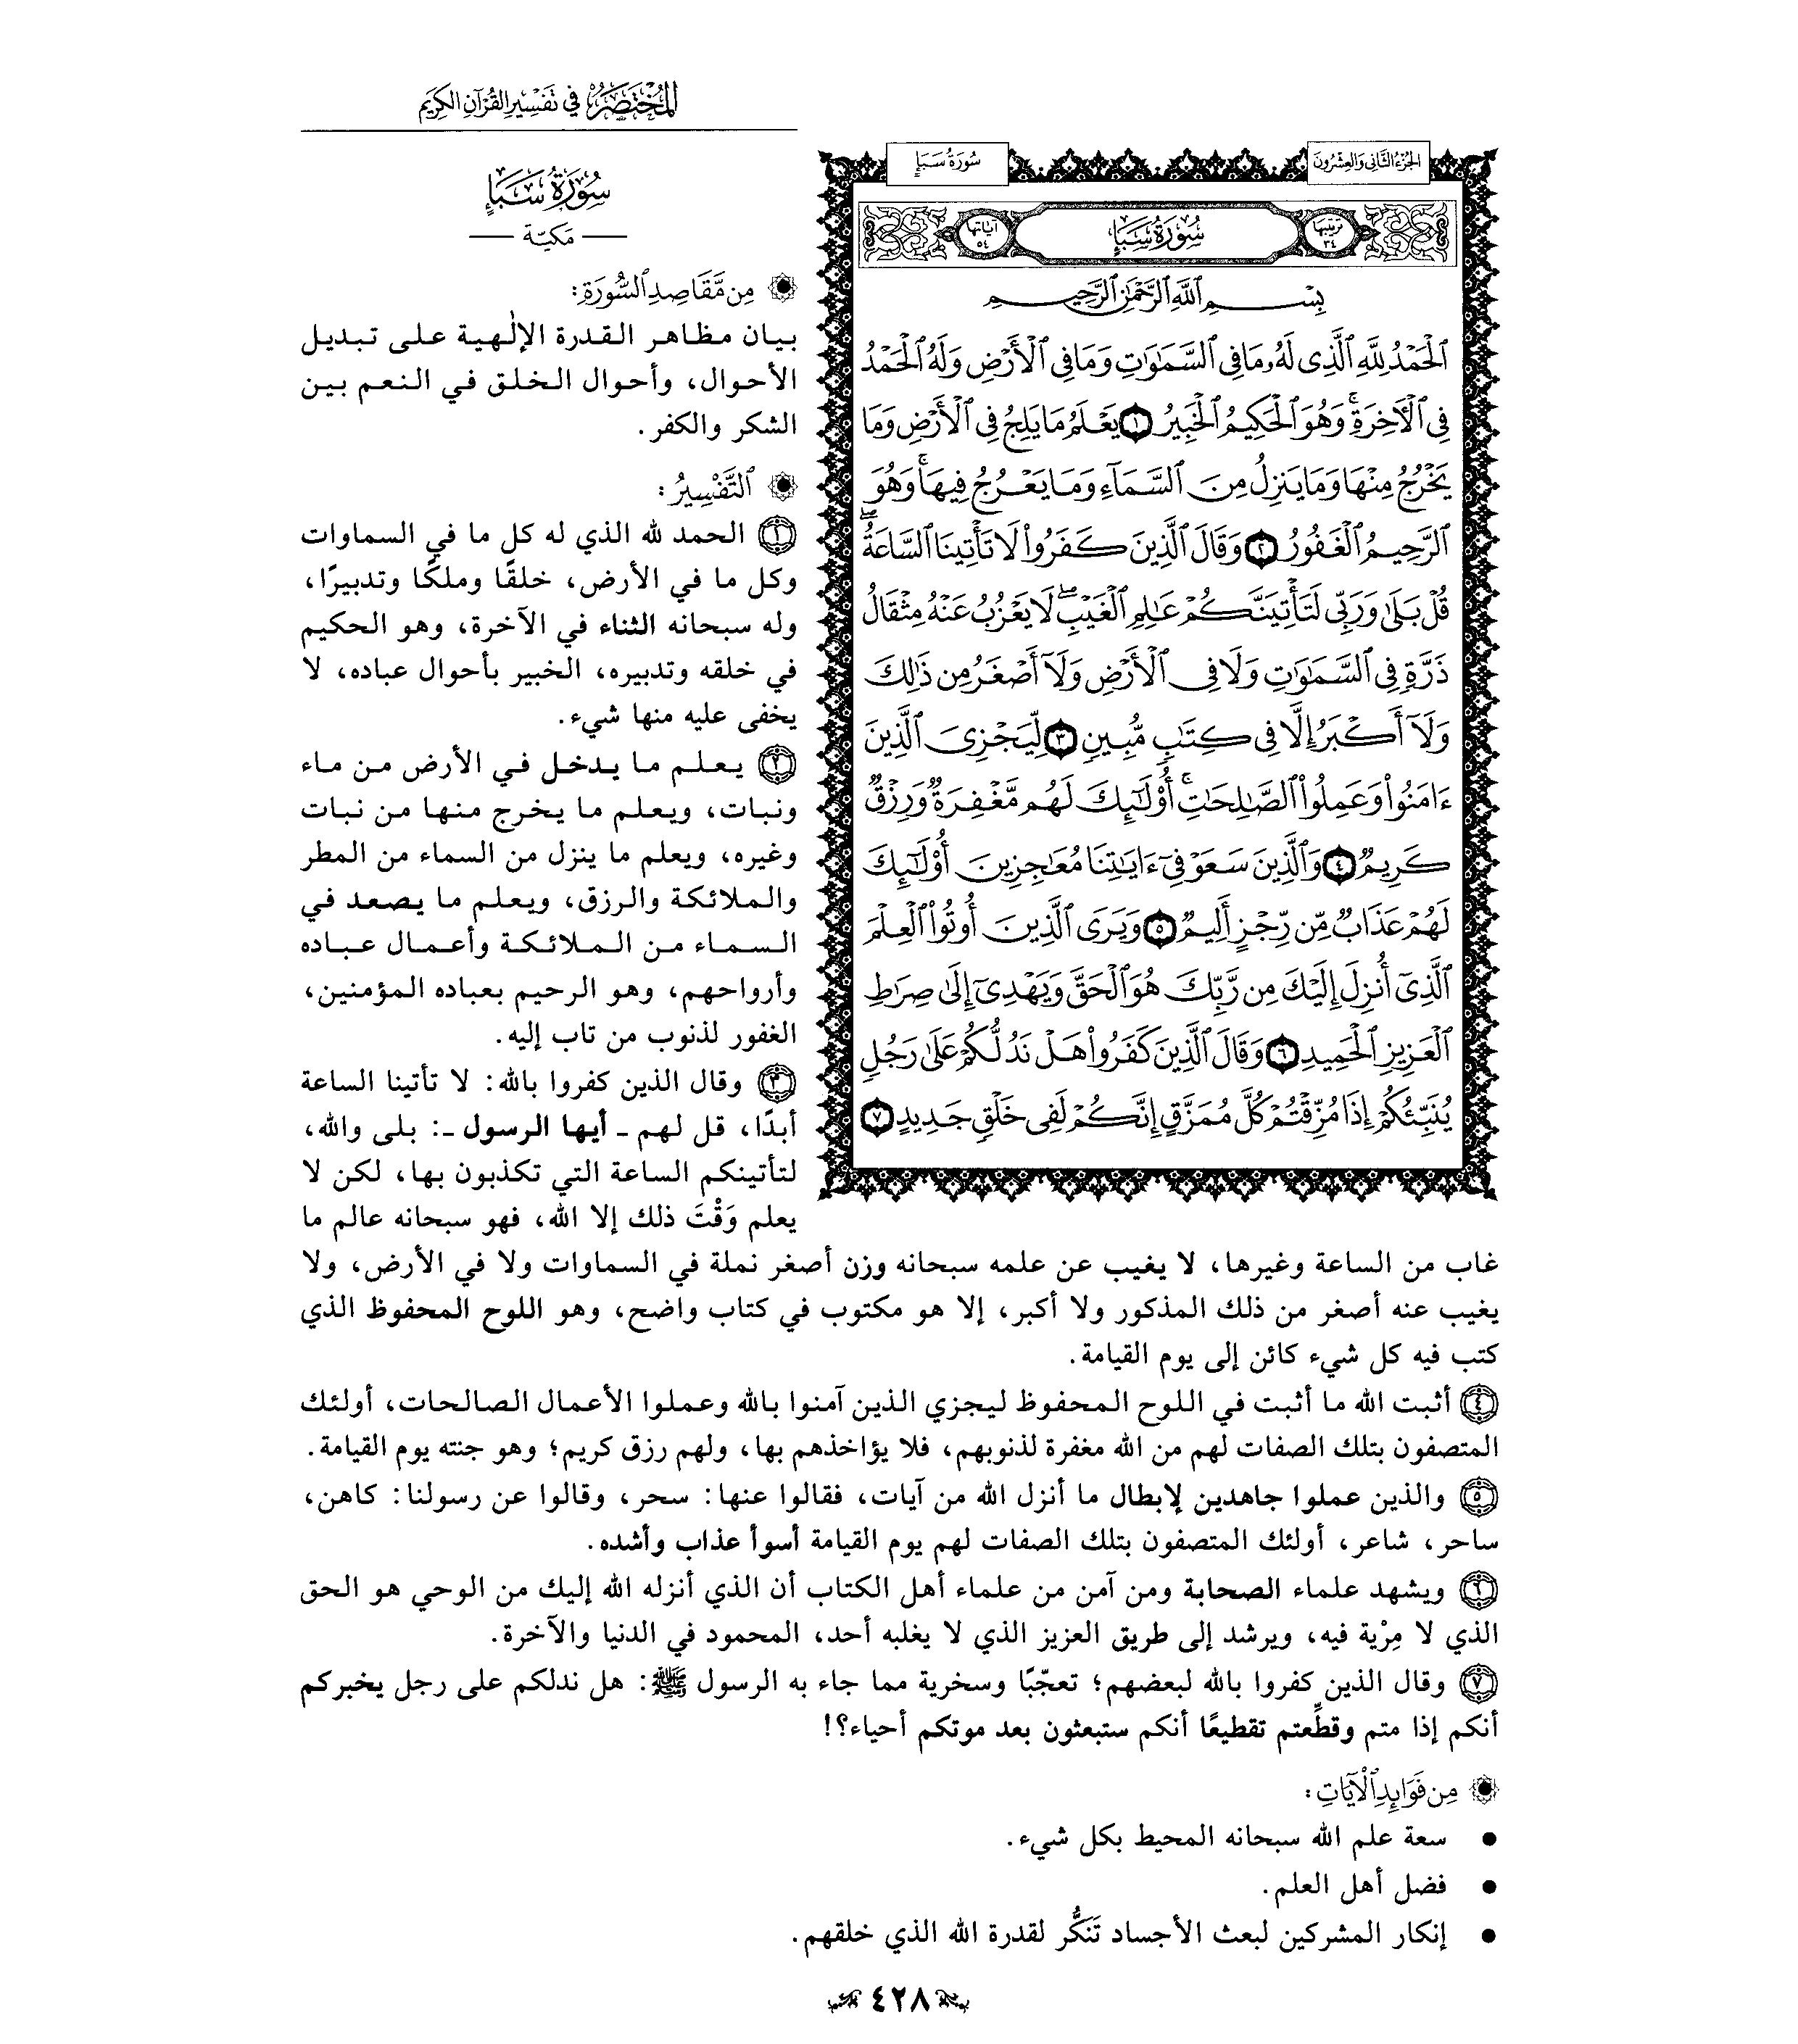 المختصر في تفسير القرآن الكريم
الجزء الثاني والعشرون
سورة سبإ
ترتيبها ٣٤
سورة سبإ
آياتها ٥٤
بِسْمِ ٱللَّهِ ٱلرَّحْمَٰنِ ٱلرَّحِيمِ
ٱلْحَمْدُ لِلَّهِ ٱلَّذِى لَهُۥ مَا فِى ٱلسَّمَٰوَٰتِ وَمَا فِى ٱلْأَرْضِ وَلَهُ ٱلْحَمْدُ
فِى ٱلْأٓخِرَةِۚ وَهُوَ ٱلْحَكِيمُ ٱلْخَبِيرُ ١ يَعْلَمُ مَا يَلِجُ فِى ٱلْأَرْضِ وَمَا
يَخْرُجُ مِنْهَا وَمَا يَنزِلُ مِنَ ٱلسَّمَآءِ وَمَا يَعْرُجُ فِيهَاۚ وَهُوَ
ٱلرَّحِيمُ ٱلْغَفُورُ ٢ وَقَالَ ٱلَّذِينَ كَفَرُوا۟ لَا تَأْتِينَا ٱلسَّاعَةُۖ
قُلْ بَلَىٰ وَرَبِّى لَتَأْتِيَنَّكُمْ عَٰلِمِ ٱلْغَيْبِۖ لَا يَعْزُبُ عَنْهُ مِثْقَالُ
ذَرَّةٍ فِى ٱلسَّمَٰوَٰتِ وَلَا فِى ٱلْأَرْضِ وَلَآ أَصْغَرُ مِن ذَٰلِكَ
وَلَآ أَكْبَرُ إِلَّا فِى كِتَٰبٍ مُّبِينٍ ٣ لِّيَجْزِىَ ٱلَّذِينَ
ءَامَنُوا۟ وَعَمِلُوا۟ ٱلصَّٰلِحَٰتِۚ أُو۟لَٰٓئِكَ لَهُم مَّغْفِرَةٌ وَرِزْقٌ
كَرِيمٌ ٤ وَٱلَّذِينَ سَعَوْ فِىٓ ءَايَٰتِنَا مُعَٰجِزِينَ أُو۟لَٰٓئِكَ
لَهُمْ عَذَابٌ مِّن رِّجْزٍ أَلِيمٌ ٥ وَيَرَى ٱلَّذِينَ أُوتُوا۟ ٱلْعِلْمَ
ٱلَّذِىٓ أُنزِلَ إِلَيْكَ مِن رَّبِّكَ هُوَ ٱلْحَقَّ وَيَهْدِىٓ إِلَىٰ صِرَٰطِ
ٱلْعَزِيزِ ٱلْحَمِيدِ ٦ وَقَالَ ٱلَّذِينَ كَفَرُوا۟ هَلْ نَدُلُّكُمْ عَلَىٰ رَجُلٍ
يُنَبِّئُكُمْ إِذَا مُزِّقْتُمْ كُلَّ مُمَزَّقٍ إِنَّكُمْ لَفِى خَلْقٍ جَدِيدٍ ٧
سُورَةُ سَبَإٍ
— مَكيّة —
مِن مَّقَاصِدِ ٱلسُّورَةِ:
بيان مظاهر القدرة الإلٰهية على تبديل
الأحوال، وأحوال الخلق في النعم بين
الشكر والكفر.
ٱلتَّفْسِيرُ:
١ الحمد لله الذي له كل ما في السماوات
وكل ما في الأرض، خلقًا وملكًا وتدبيرًا،
وله سبحانه الثناء في الآخرة، وهو الحكيم
في خلقه وتدبيره، الخبير بأحوال عباده، لا
يخفى عليه منها شيء.
٢ يعلم ما يدخل في الأرض من ماء
ونبات، ويعلم ما يخرج منها من نبات
وغيره، ويعلم ما ينزل من السماء من المطر
والملائكة والرزق، ويعلم ما يصعد في
السماء من الملائكة وأعمال عباده
وأرواحهم، وهو الرحيم بعباده المؤمنين،
الغفور لذنوب من تاب إليه.
٣ وقال الذين كفروا بالله: لا تأتينا الساعة
أبدًا، قل لهم ـ أيها الرسول ـ: بلى والله،
لتأتينكم الساعة التي تكذبون بها، لكن لا
يعلم وَقْتَ ذلك إلا الله، فهو سبحانه عالم ما
غاب من الساعة وغيرها، لا يغيب عن علمه سبحانه وزن أصغر نملة في السماوات ولا في الأرض، ولا
يغيب عنه أصغر من ذلك المذكور ولا أكبر، إلا هو مكتوب في كتاب واضح، وهو اللوح المحفوظ الذي
كتب فيه كل شيء كائن إلى يوم القيامة.
٤ أثبت الله ما أثبت في اللوح المحفوظ ليجزي الذين آمنوا بالله وعملوا الأعمال الصالحات، أولئك
المتصفون بتلك الصفات لهم من الله مغفرة لذنوبهم، فلا يؤاخذهم بها، ولهم رزق كريم؛ وهو جنته يوم القيامة.
٥ والذين عملوا جاهدين لإبطال ما أنزل الله من آيات، فقالوا عنها: سحر، وقالوا عن رسولنا: كاهن،
ساحر، شاعر، أولئك المتصفون بتلك الصفات لهم يوم القيامة أسوأ عذاب وأشده.
٦ ويشهد علماء الصحابة ومن آمن من علماء أهل الكتاب أن الذي أنزله الله إليك من الوحي هو الحق
الذي لا مِرْية فيه، ويرشد إلى طريق العزيز الذي لا يغلبه أحد، المحمود في الدنيا والآخرة.
٧ وقال الذين كفروا بالله لبعضهم؛ تعجّبًا وسخرية مما جاء به الرسول ﷺ: هل ندلكم على رجل يخبركم
أنكم إذا متم وقطِّعتم تقطيعًا أنكم ستبعثون بعد موتكم أحياء؟!
مِن فَوَائِدِ ٱلْآيَاتِ:
• سعة علم الله سبحانه المحيط بكل شيء.
• فضل أهل العلم.
• إنكار المشركين لبعث الأجساد تَنَكُّر لقدرة الله الذي خلقهم.
٤٢٨